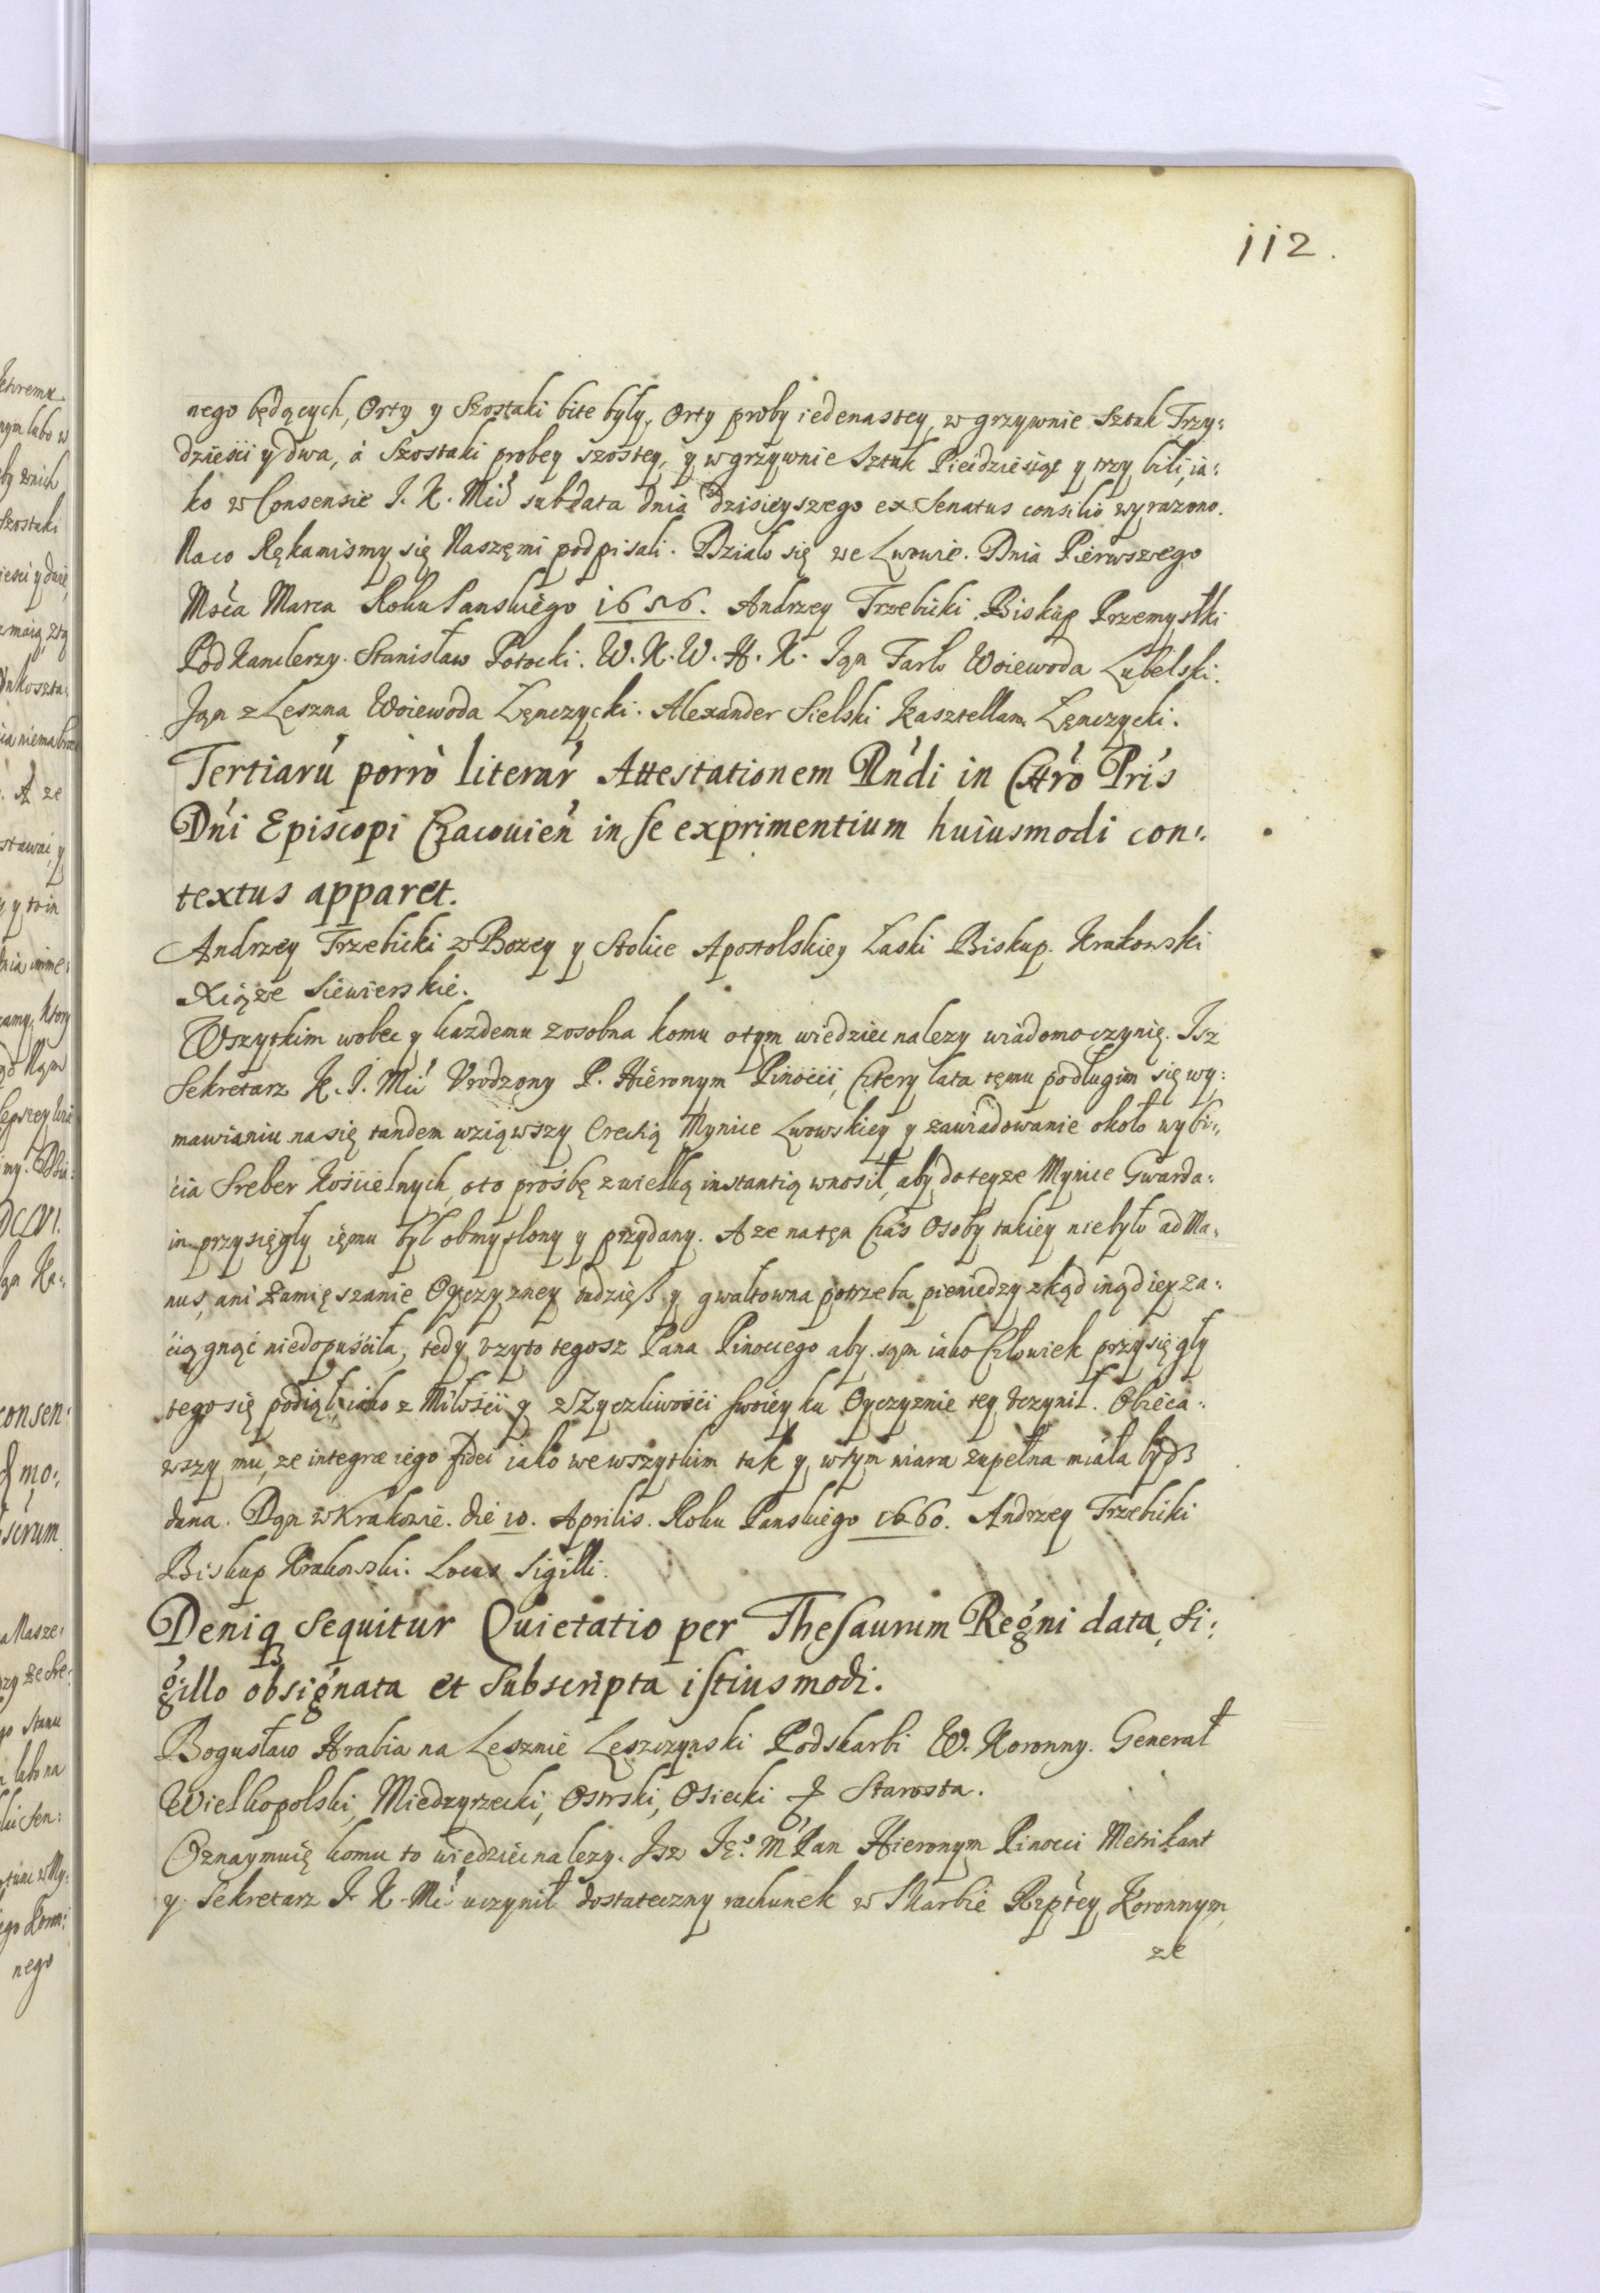 112.
nego będących, Orty y Szostaki bite były, Orty proby iedenastey, w grzywnie Sztuk Trzy:
dzieści y dwa, á Szostaki probey szostey, y w grzywnie Sztuk Piećdziesiąt y trzy bili, ia:
ko w Consensie J. K. Mći sub data dnia dzisieyszego ex Senatus consilio wyrazono.
Na co Rękamismy się Naszęmi podpisali. Działo się we Lwowie. Dnia Pierwszego
Mśca Marca Roku Panskiego 1656. Andrzey Trzebicki Biskup Przemyslki
Podkanclerzy. Stanisław Potocki. W. K. W. H. K. Jąn Tarło Woiewoda Lubelski.
Jąn z Leszna Woiewoda Łęnczycki. Alexander Sielski Kasztellam Łęnczycki.
Tertiarú porrò literar' Attestationem Rńdi in Chrò Pris
Dńi Episcopi Cracouień in se exprimentium huiusmodi con:
textus apparet.
Andrzey Trzebicki z Bozey y Stolice Apostolskiey Łaski Biskup. Krakowski
Xiąze Siewierskie.
Wszytkim wobec y kazdemu zosobna komu otym wiedziec nalezy wiadomo czynię. Isz
Sekretarz K. J. Mći Vrodzony P. Hieronym Pinocci, Cztery lata tęmu podługim się wy:
mawianiu nasię tandem wziąwszy Erectią Mynice Lwowskiey y zawiadowanie około wybi:
ćia Sreber Kośćielnych, oto prośbę z wielką instantią wnosił, aby do teyze Mynice Gwarda:
in przysięgły ięmu był obmyslony y przydany. A ze natęn Czas Osoby takiey nie było ad Ma:
nus, ani Zamięszanie Oyczyzney tudzięß y gwałtowna potrzeba pieniedzy zkąd inądiey za:
ćiągnąć niedopuśćiła, tedy vzyto tegosz Pana Pinoccego aby sąm iako Człowiek przysięgły
tego się podiął, iako z Miłośći y z Zyczliwośći swoiey ku Oyczyznie tey vczynił. Obieca:
wszy mu, ze integræ iego fidei iako we wszytkim tak y wtym wiara zupełna miała bydź
dana. Dąn w Krakowie. die 10. Aprilis. Roku Panskiego 1660. Andrzey Trzebicki
Biskup Krakowski. Locus Sigilli.
Deniq3 sequitur Quietatio per Thesaurum Regni data, si:
gillo obsignata et Subscripta istiusmodi.
Bogusław Hrabia na Lesznie Leszczynski Podskarbi W. Koronny. Generał
Wielkopolski, Miedzyrzecki, Ostrski, Osiecki & Starosta.
Oznaymuię komu to wiedziec nalezy. Isz Ięo. M Pan Hieronym Pinocci Metrikant
y Sekretarz J. K. Mći uczynił dostateczny rachunek w Skarbie Rzptey Koronnym,
ze